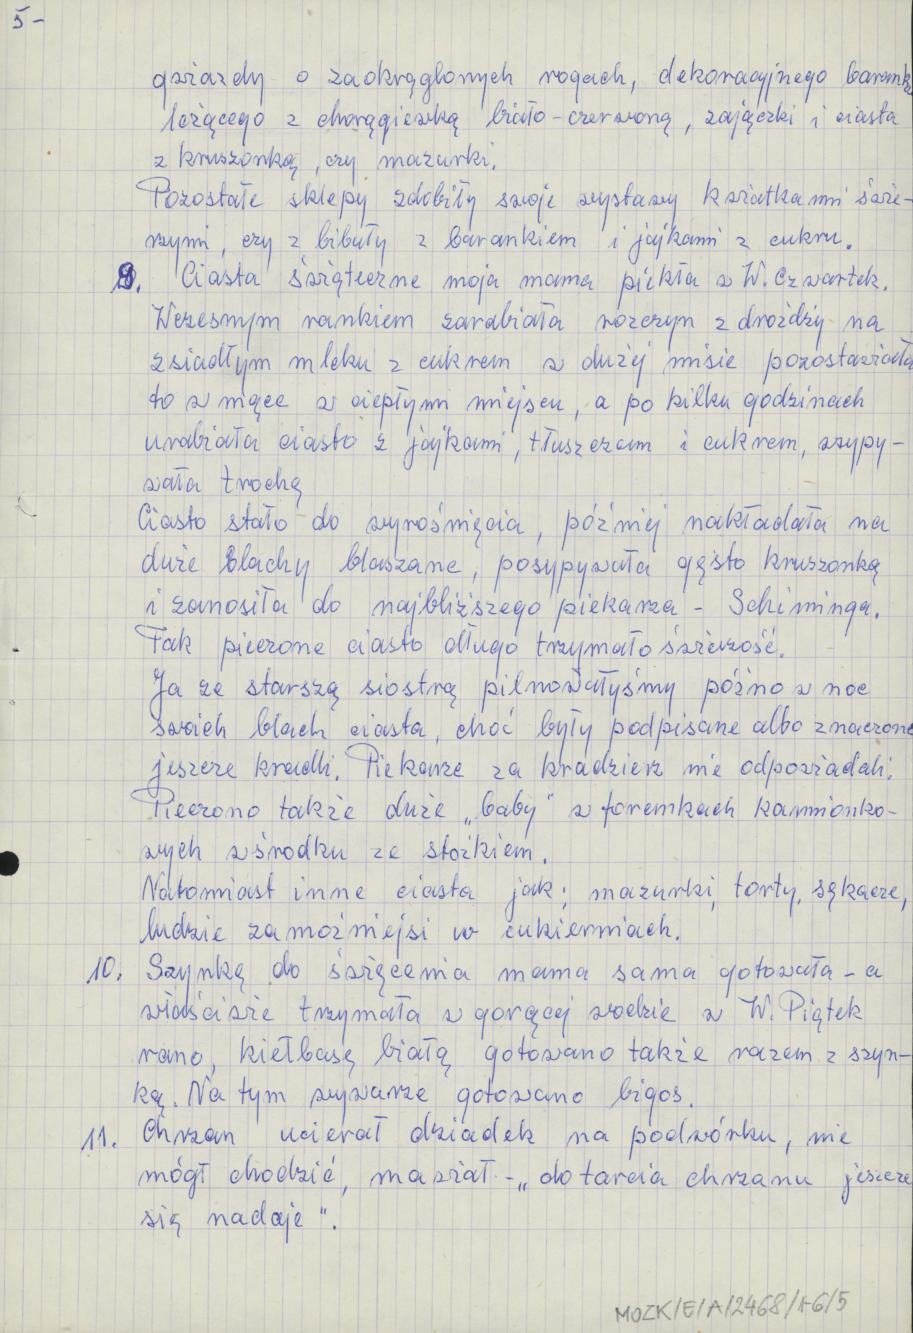 5-
gwiazdy o zaokrąglonych rogach, dekoracyjnego baranka
leżącego z chorągiewką biało-czerwoną, zajączki i ciasta
z kruszonką, czy mazurki.
Pozostałe sklepy zdobiły swoje wystawy kwiatkami świe-
rzymi, czy z bibuły z barankiem i jajkami z cukru.
9. Ciasta świąteczne moja mama piekła w W. Czwartek.
Wczesnym rankiem zarabiała rozczyn z drożdży na
zsiadłym mleku z cukrem w dużej misie pozostawiała
to w mące w ciepłym miejscu, a po kilku godzinach
urabiała ciasto z jajkami, tłuszczem i cukrem, wypy-
wała trochą
Ciasto stało do wyrośnięcia, później nakładała na
duże blachy blaszane, posypywała gęsto kruszonką
i zanosiła do najbliższego piekarza - Schiminga.
Tak pieczone ciasto długo trzymało świeżość.
Ja ze starszą siostrą pilnowałyśmy późno w noc
swoich blach ciasta, choć były podpisane albo znaczone
jeszcze kradli. Piekarze za kradzierz nie odpowiadali.
Pieczono także duże „baby" w foremkach kamionko-
wych w środku ze stożkiem.
Natomiast inne ciasta jak; mazurki, torty, sękacze,
ludzie zamożniejsi w cukierniach.
10. Szynkę do święcenia mama sama gotowała - a
właściwie trzymała w gorącej wodzie w W. Piątek
rano, kiełbasę białą gotowano także razem z szyn-
ką. Na tym wywarze gotowano bigos.
11. Chrzan ucierał dziadek na podwórku, nie
mógł chodzić, mawiał - „do tarcia chrzanu jeszcze
się nadaje".
MOZK/E/A/2468/1-6/5